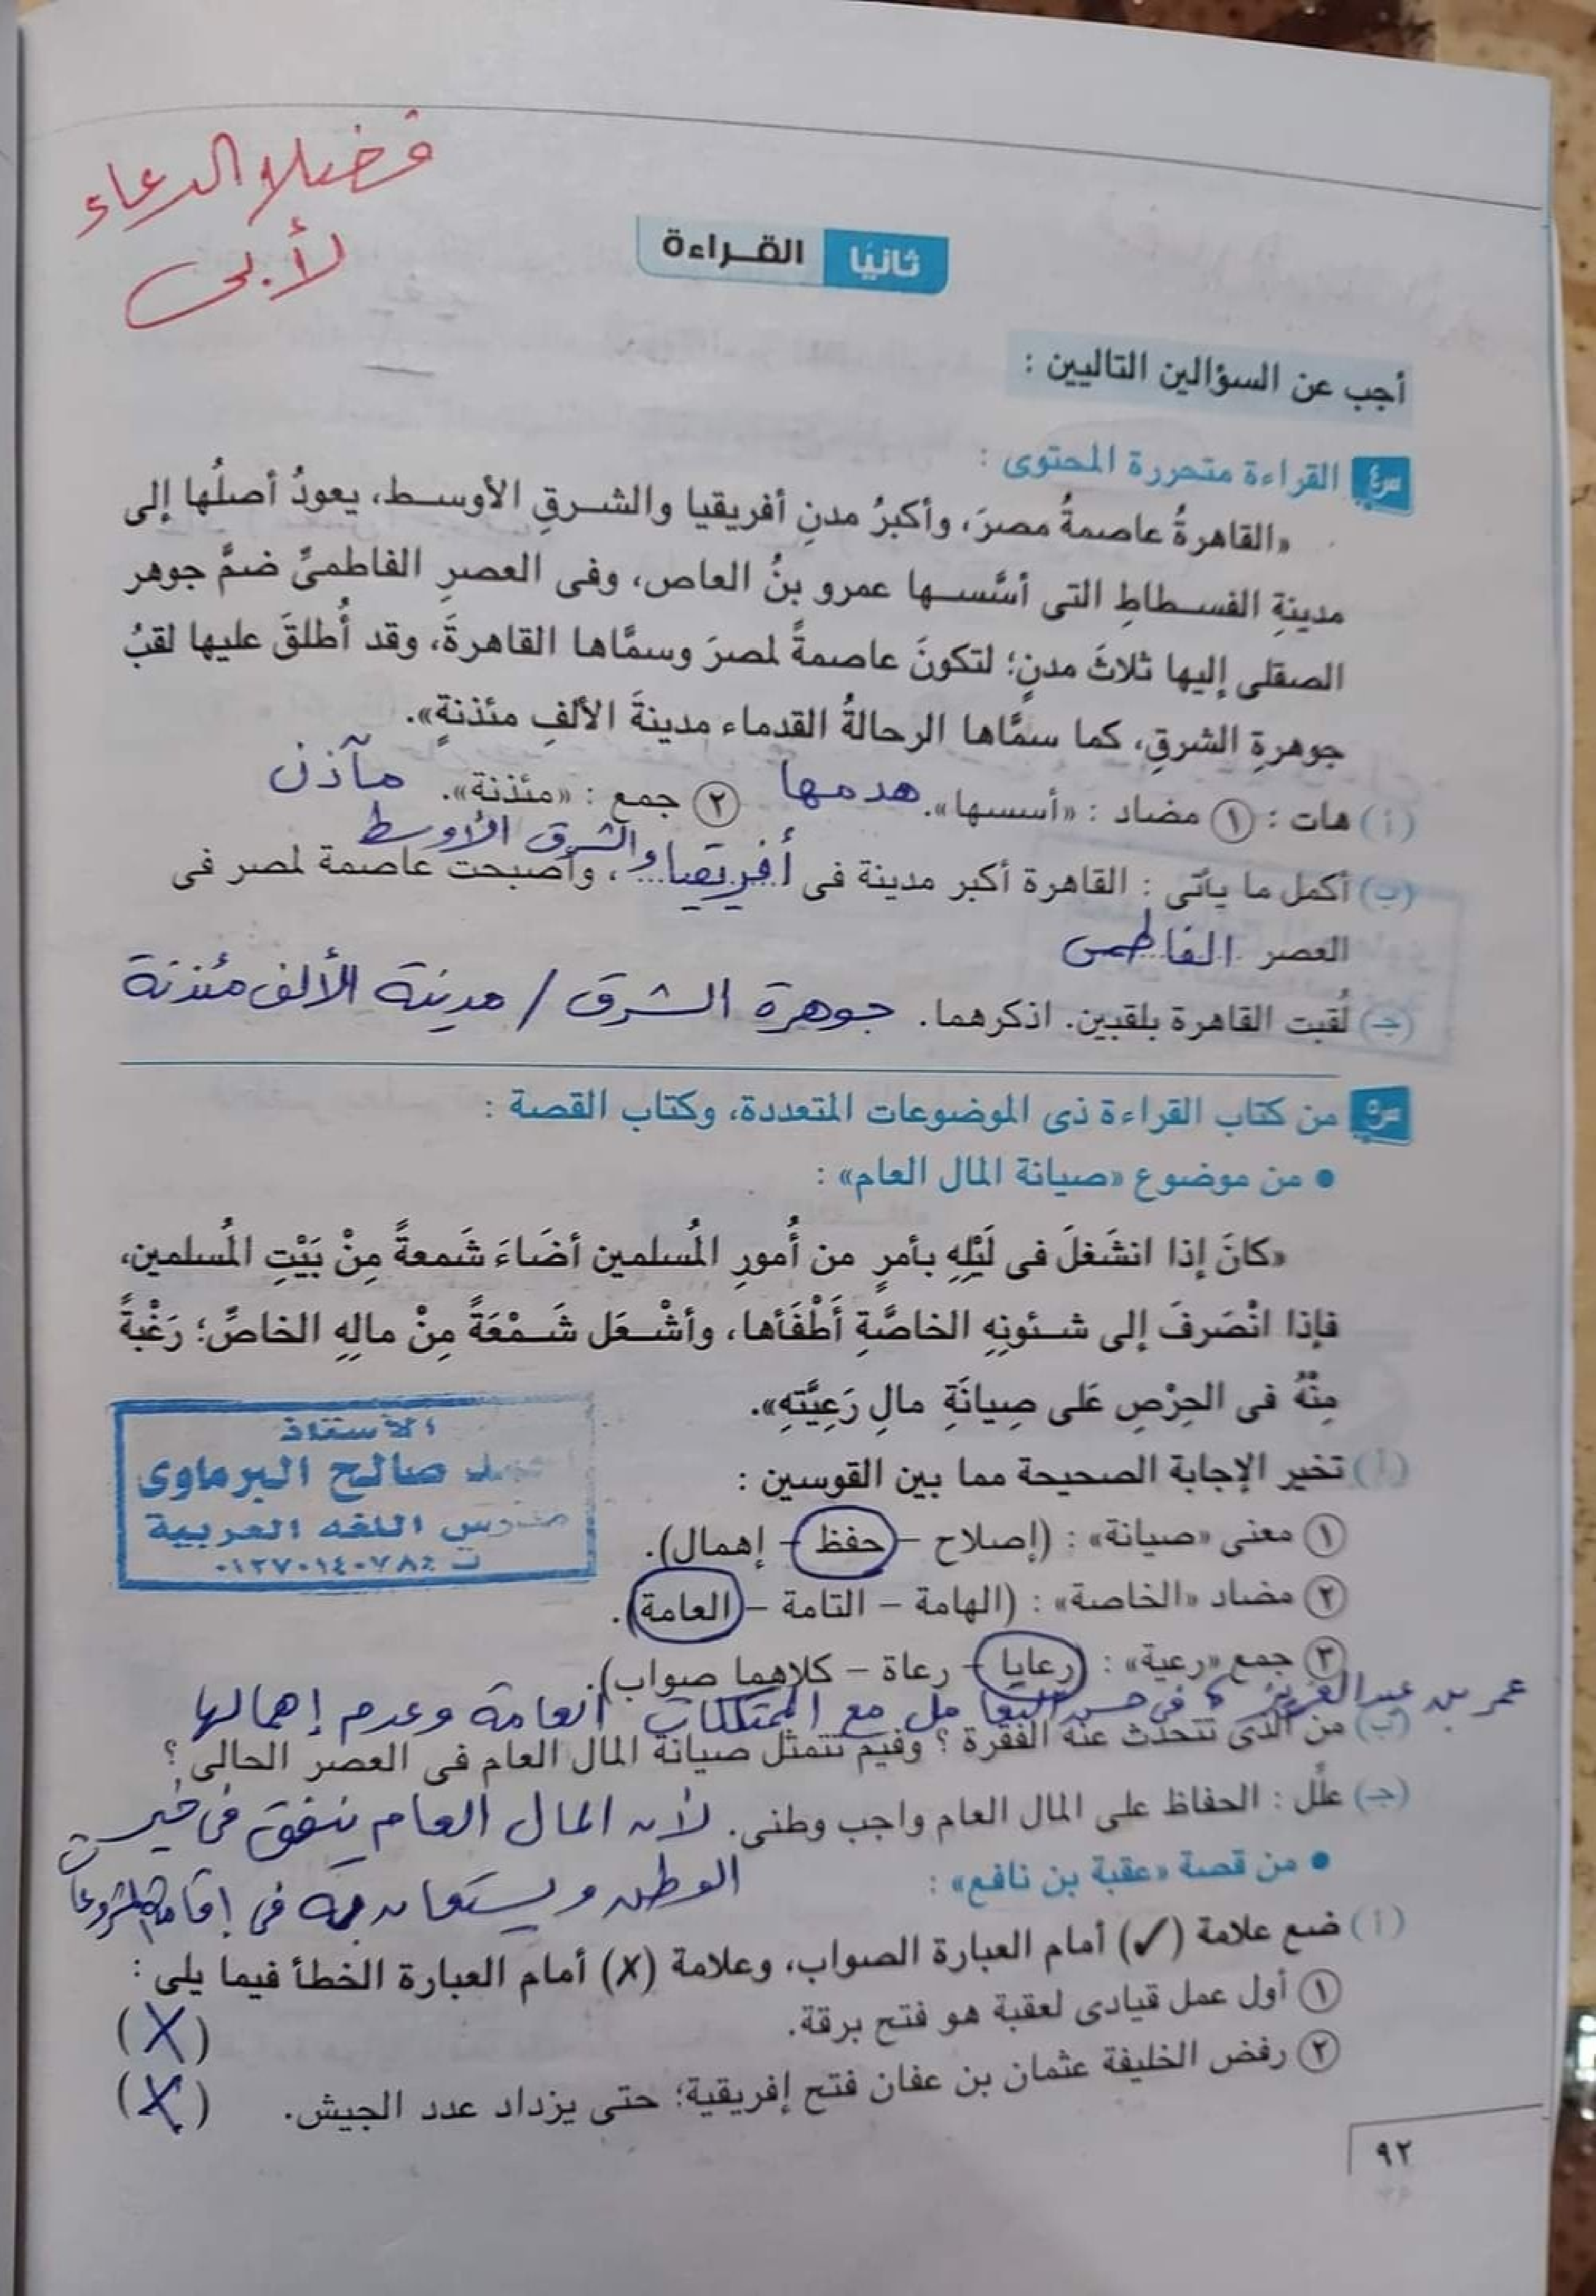 فضلا الدعاء
لأبى
ثانيًا القراءة
أجب عن السؤالين التاليين :
س٤ القراءة متحررة المحتوى :
«القاهرةُ عاصمةُ مصرَ، وأكبرُ مدنِ أفريقيا والشرقِ الأوسط، يعودُ أصلُها إلى
مدينةِ الفسطاطِ التى أسَّسها عمرو بنُ العاص، وفى العصرِ الفاطمىِّ ضمَّ جوهر
الصقلى إليها ثلاثَ مدنٍ؛ لتكونَ عاصمةً لمصرَ وسمَّاها القاهرةَ، وقد أُطلقَ عليها لقبُ
جوهرةِ الشرقِ، كما سمَّاها الرحالةُ القدماء مدينةَ الألفِ مئذنةٍ».
(أ) هات : ١ مضاد : «أسسها». هدمها ٢ جمع : «مئذنة». مآذن
(ب) أكمل ما يأتى : القاهرة أكبر مدينة فى أفريقيا والشرق الأوسط، وأصبحت عاصمة لمصر فى
العصر الفاطمى
(جـ) لُقبت القاهرة بلقبين. اذكرهما. جوهرة الشرق / مدينة الألف مئذنة
س٥ من كتاب القراءة ذى الموضوعات المتعددة، وكتاب القصة :
• من موضوع «صيانة المال العام» :
«كانَ إذا انشَغلَ فى لَيْلِهِ بأمرٍ من أُمورِ المُسلمين أضَاءَ شَمعةً مِنْ بَيْتِ المُسلمين،
فإذا انْصَرفَ إلى شئونِهِ الخاصَّةِ أَطْفَأها، وأشْعَل شَمْعَةً مِنْ مالِهِ الخاصِّ؛ رَغْبةً
مِنْهُ فى الحِرْصِ عَلى صِيانَةِ مالِ رَعِيَّتهِ».
الأستاذ
صالح البرماوى
مدرس اللغه العربية
(أ) تخير الإجابة الصحيحة مما بين القوسين :
١ معنى «صيانة» : (إصلاح – حفظ – إهمال).
٢ مضاد «الخاصة» : (الهامة – التامة – العامة).
٣ جمع «رعية» : (رعايا – رعاة – كلاهما صواب).
عمر بن عبد العزيز / فى حسن التعامل مع الممتلكات العامة وعدم إهمالها
(ب) من الذى تتحدث عنه الفقرة ؟ وفيم تتمثل صيانة المال العام فى العصر الحالى ؟
(جـ) علِّل : الحفاظ على المال العام واجب وطنى. لأن المال العام ينفق فى خير
الوطن ويستعان به فى إقامة المشروعات
• من قصة «عقبة بن نافع» :
(أ) ضع علامة (✓) أمام العبارة الصواب، وعلامة (✗) أمام العبارة الخطأ فيما يلى :
١ أول عمل قيادى لعقبة هو فتح برقة. (X)
٢ رفض الخليفة عثمان بن عفان فتح إفريقية؛ حتى يزداد عدد الجيش. (X)
٩٢